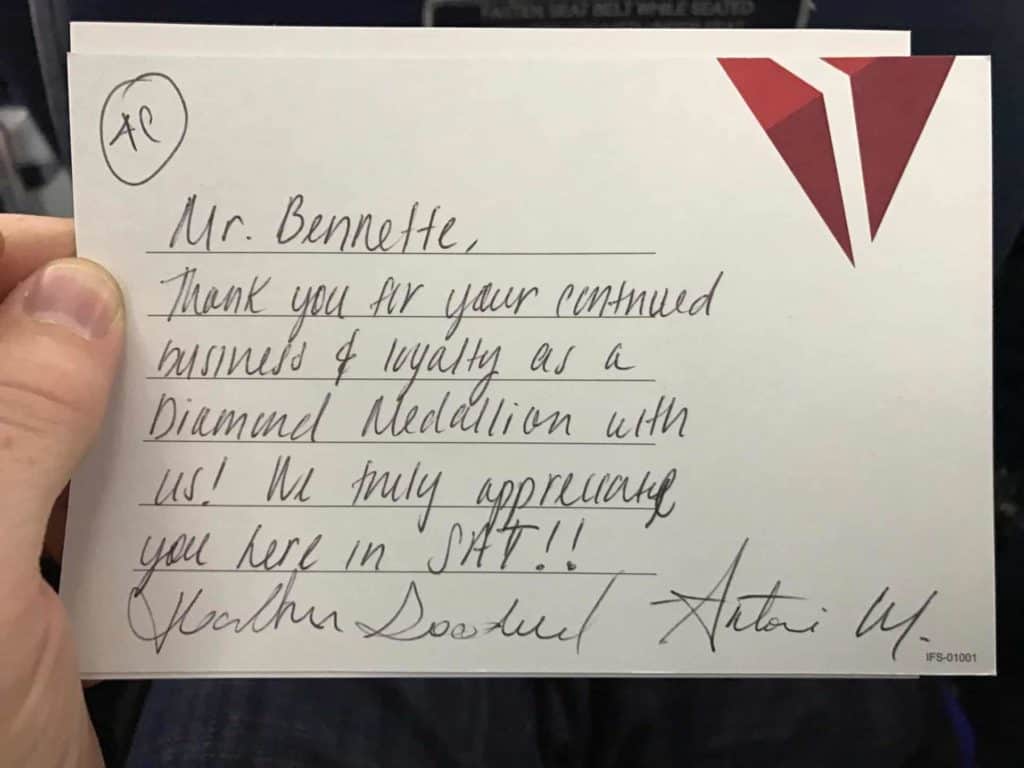 FASTEN SEAT BELT WHILE SEATED
4C
Mr. Bennette,
Thank you for your continued
business & loyalty as a
Diamond Medallion with
us! We truly appreciate
you here in SAT!!
M.
IFS-01001